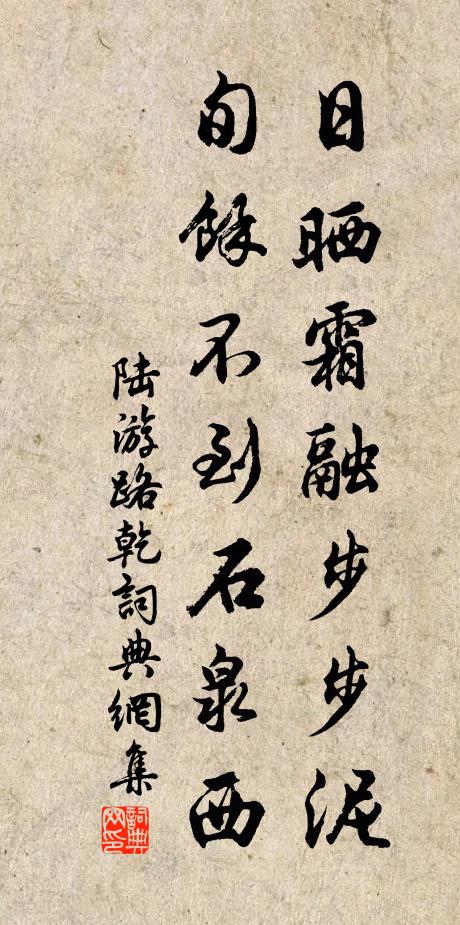 日晒霜融步步泥
旬馀不到石泉西
陆游路乾詞典網集
詞典网印